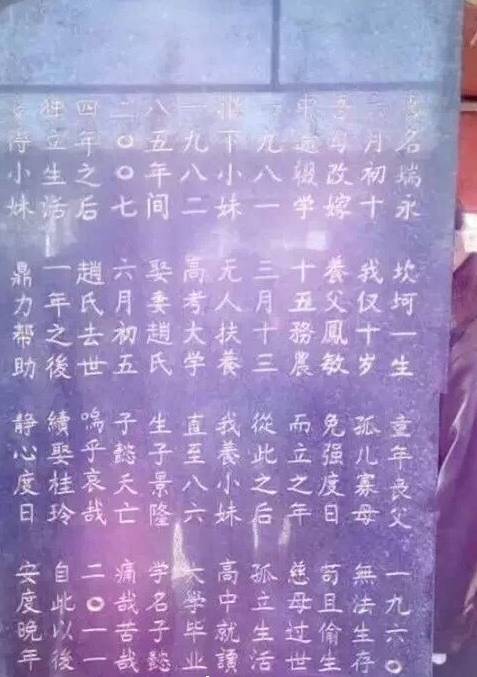 名瑞永 坎坷一生 童年丧父 一九六〇
月初十 我仅十岁 孤儿寡母 無法生存
吾母改嫁 養父鳳敏 免强度日 苟且偷生
中途辍学 十五務農 而立之年 慈母过世
一九八一 三月十三 從此之后 孤立生活
撇下小妹 无人扶養 我養小妹 高中就讀
一九八二 高考大学 直至八六 大学毕业
八五年间 娶妻趙氏 生子景隆 学名子懿
二〇〇七 六月初五 子懿夭亡 痛哉苦哉
四年之后 趙氏去世 嗚乎哀哉 二〇一一
独立生活 一年之後 續娶桂玲 自此以後
得小妹 鼎力帮助 静心度日 安度晚年